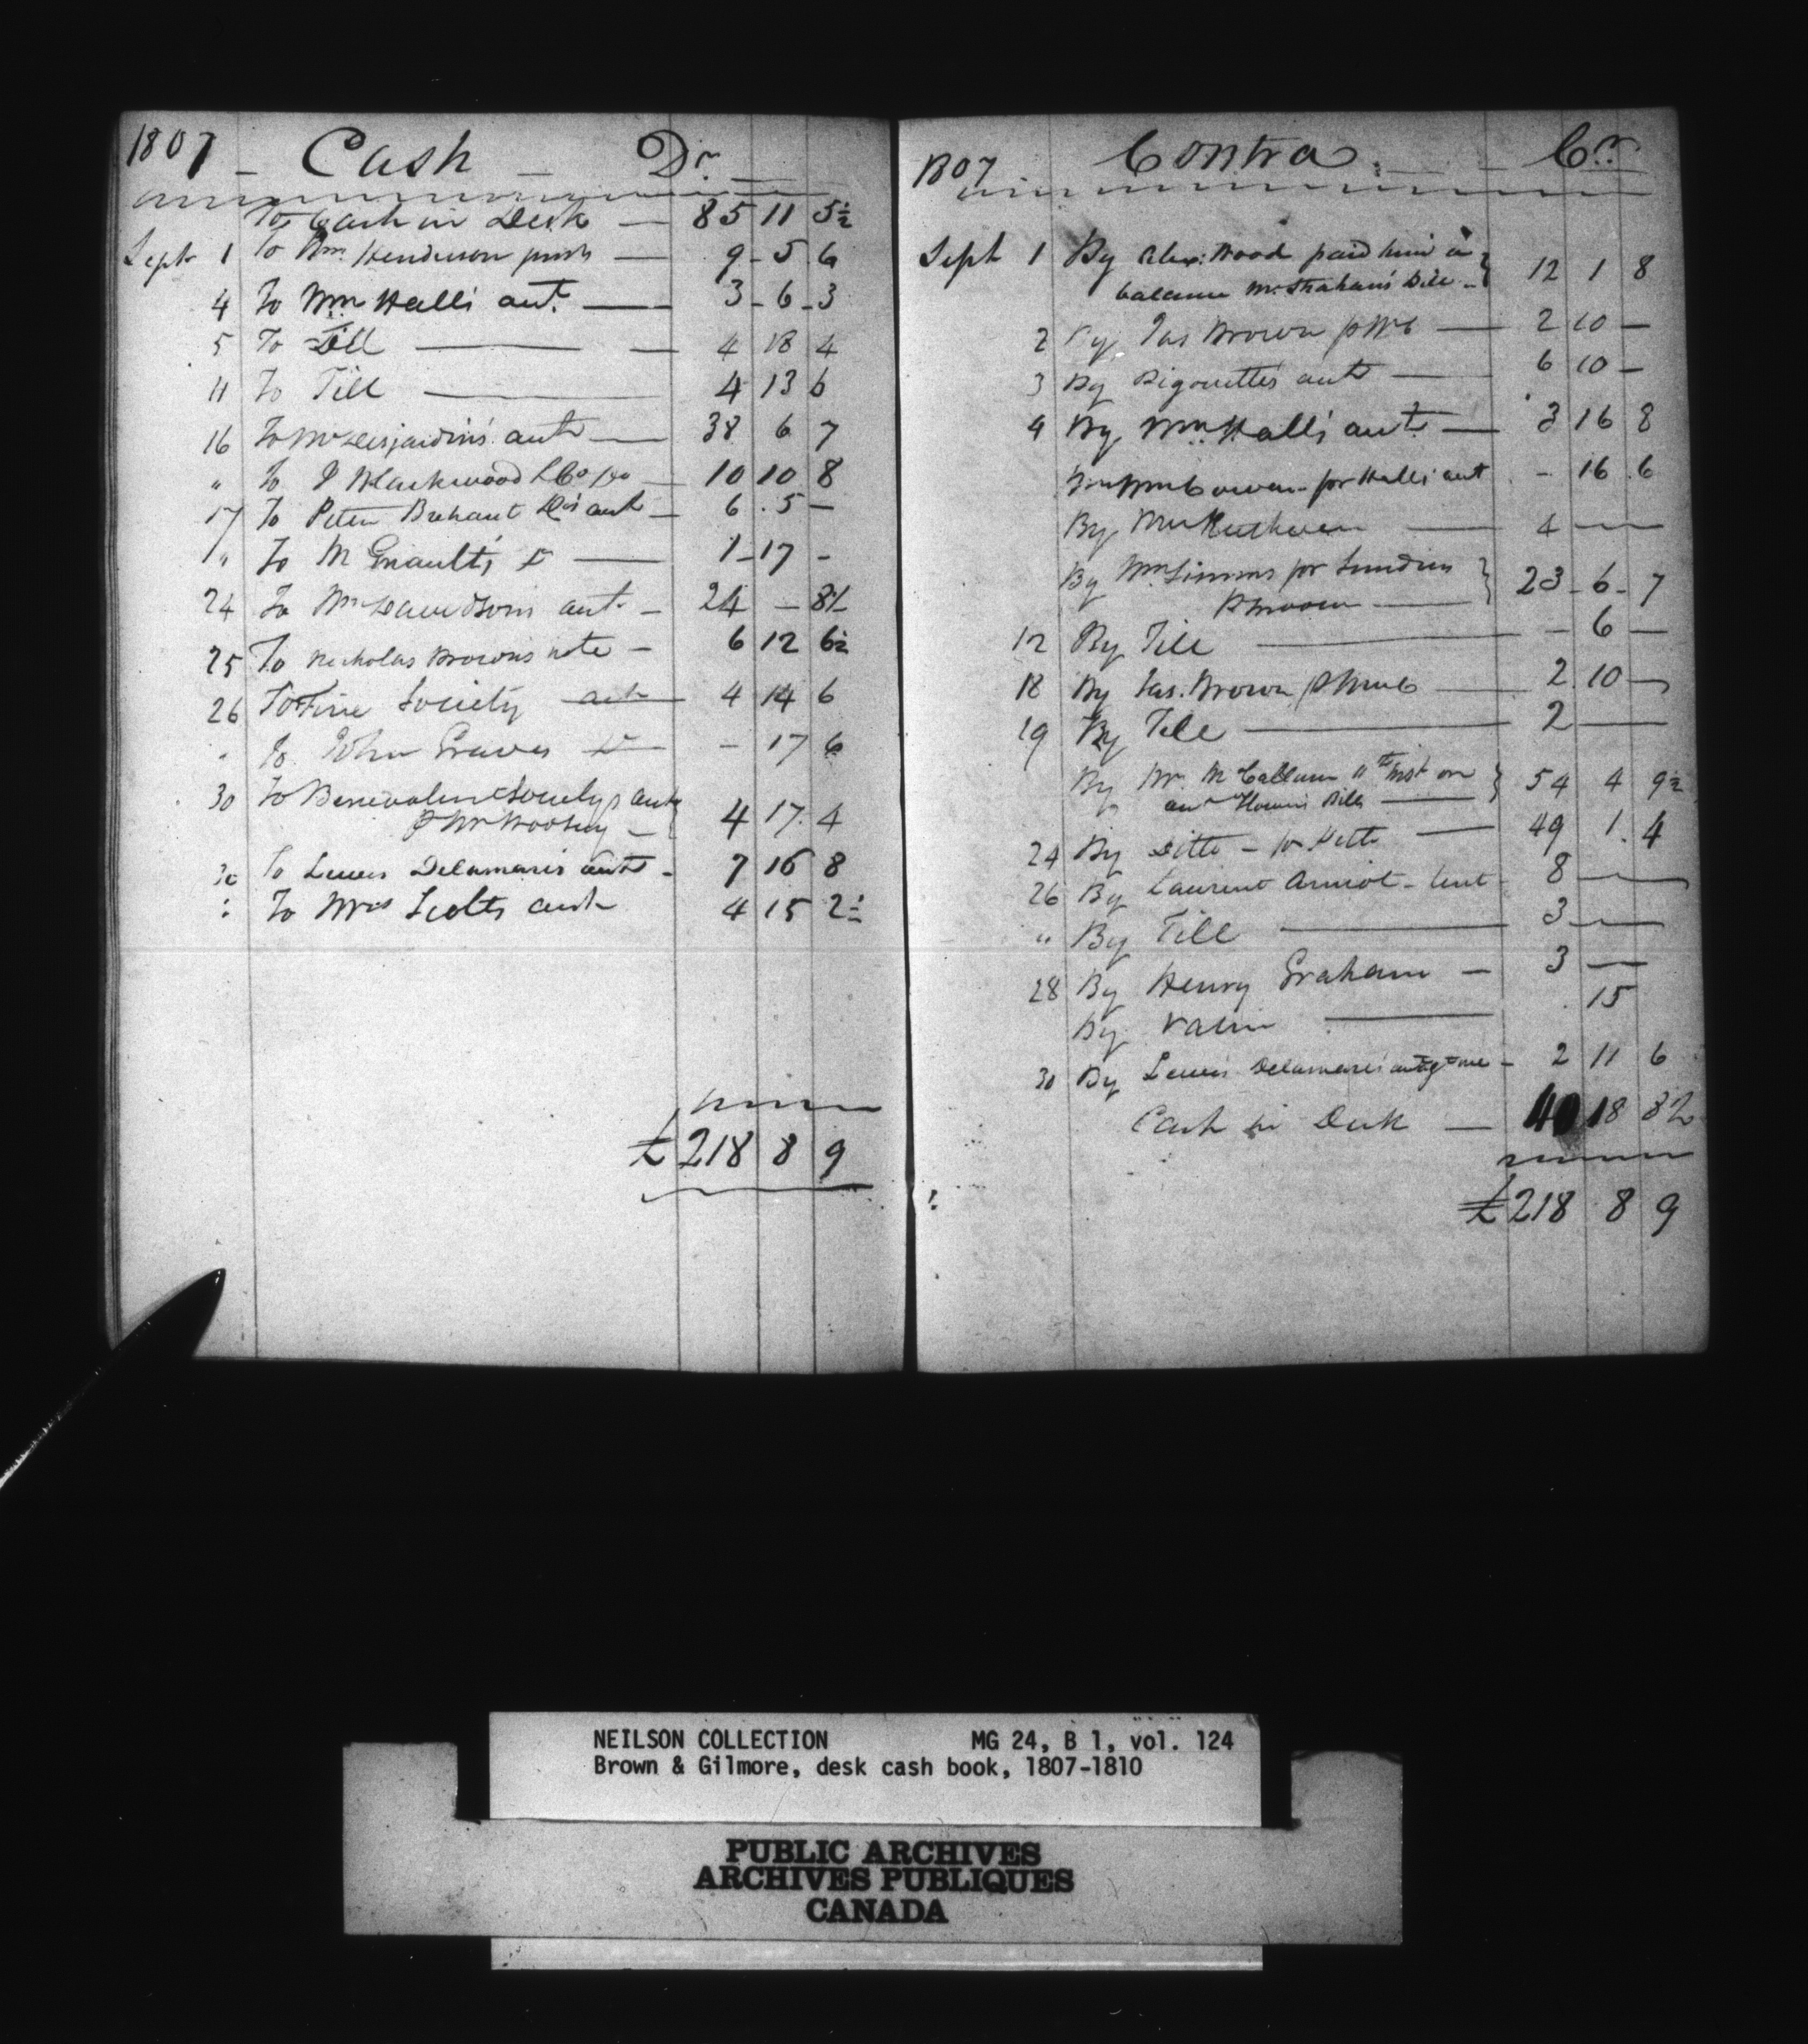 1807 Cash Dr
To Cash in Desk 85 11 5½
Sept 1 To Wm Henderson 9 5 6
4 To Wm Hall's acct 3 6 3
5 To Till 4 18 4
11 To Till 4 13 6
16 To Mr Desjardin's acct 38 6 7
" To J Blackwood & Co 10 10 8
17 To Peter Brehaut acct 6 5 –
" To M 1 17 –
24 To Wm Davidson's acct 24 – 8½
25 To Nicholas Brown's note 6 12 6½
26 To Fire Society acct 4 14 6
To John Graves Do – 17 6
30 To Benevolent Society's acct
4 17 4
30 To Lewis Delamare's acct 7 16 8
: To Mrs Scott's acct 4 15 2½
£ 218 8 9
1807 Contra Cr
Sept 1 By Alex: Wood paid him in
balance Mr Strahan's Bill 12 1 8
2 By Jas Brown 2 10 –
3 By Bigouette's acct 6 10 –
4 By Wm Hall's acct 3 16 8
for Hall's acct – 16 6
By Mr 4 – –
By Wm Simons for Sundries
23 6 7
12 By Till – 6 –
18 By Jas. Brown 2 10 –
19 By Till 2 –
By Mr McCallum 11th inst on
acct Bills 54 4 9½
24 By Ditto – for Ditto 49 1 4
26 By Laurent Amiot – lent 8 –
" By Till 3 –
28 By Henry Graham 3 –
By 15
30 By Lewis Delamare's 2 11 6
Cash in Desk 40 18 8½
£ 218 8 9
NEILSON COLLECTION MG 24, B 1, vol. 124
Brown & Gilmore, desk cash book, 1807-1810
PUBLIC ARCHIVES
ARCHIVES PUBLIQUES
CANADA